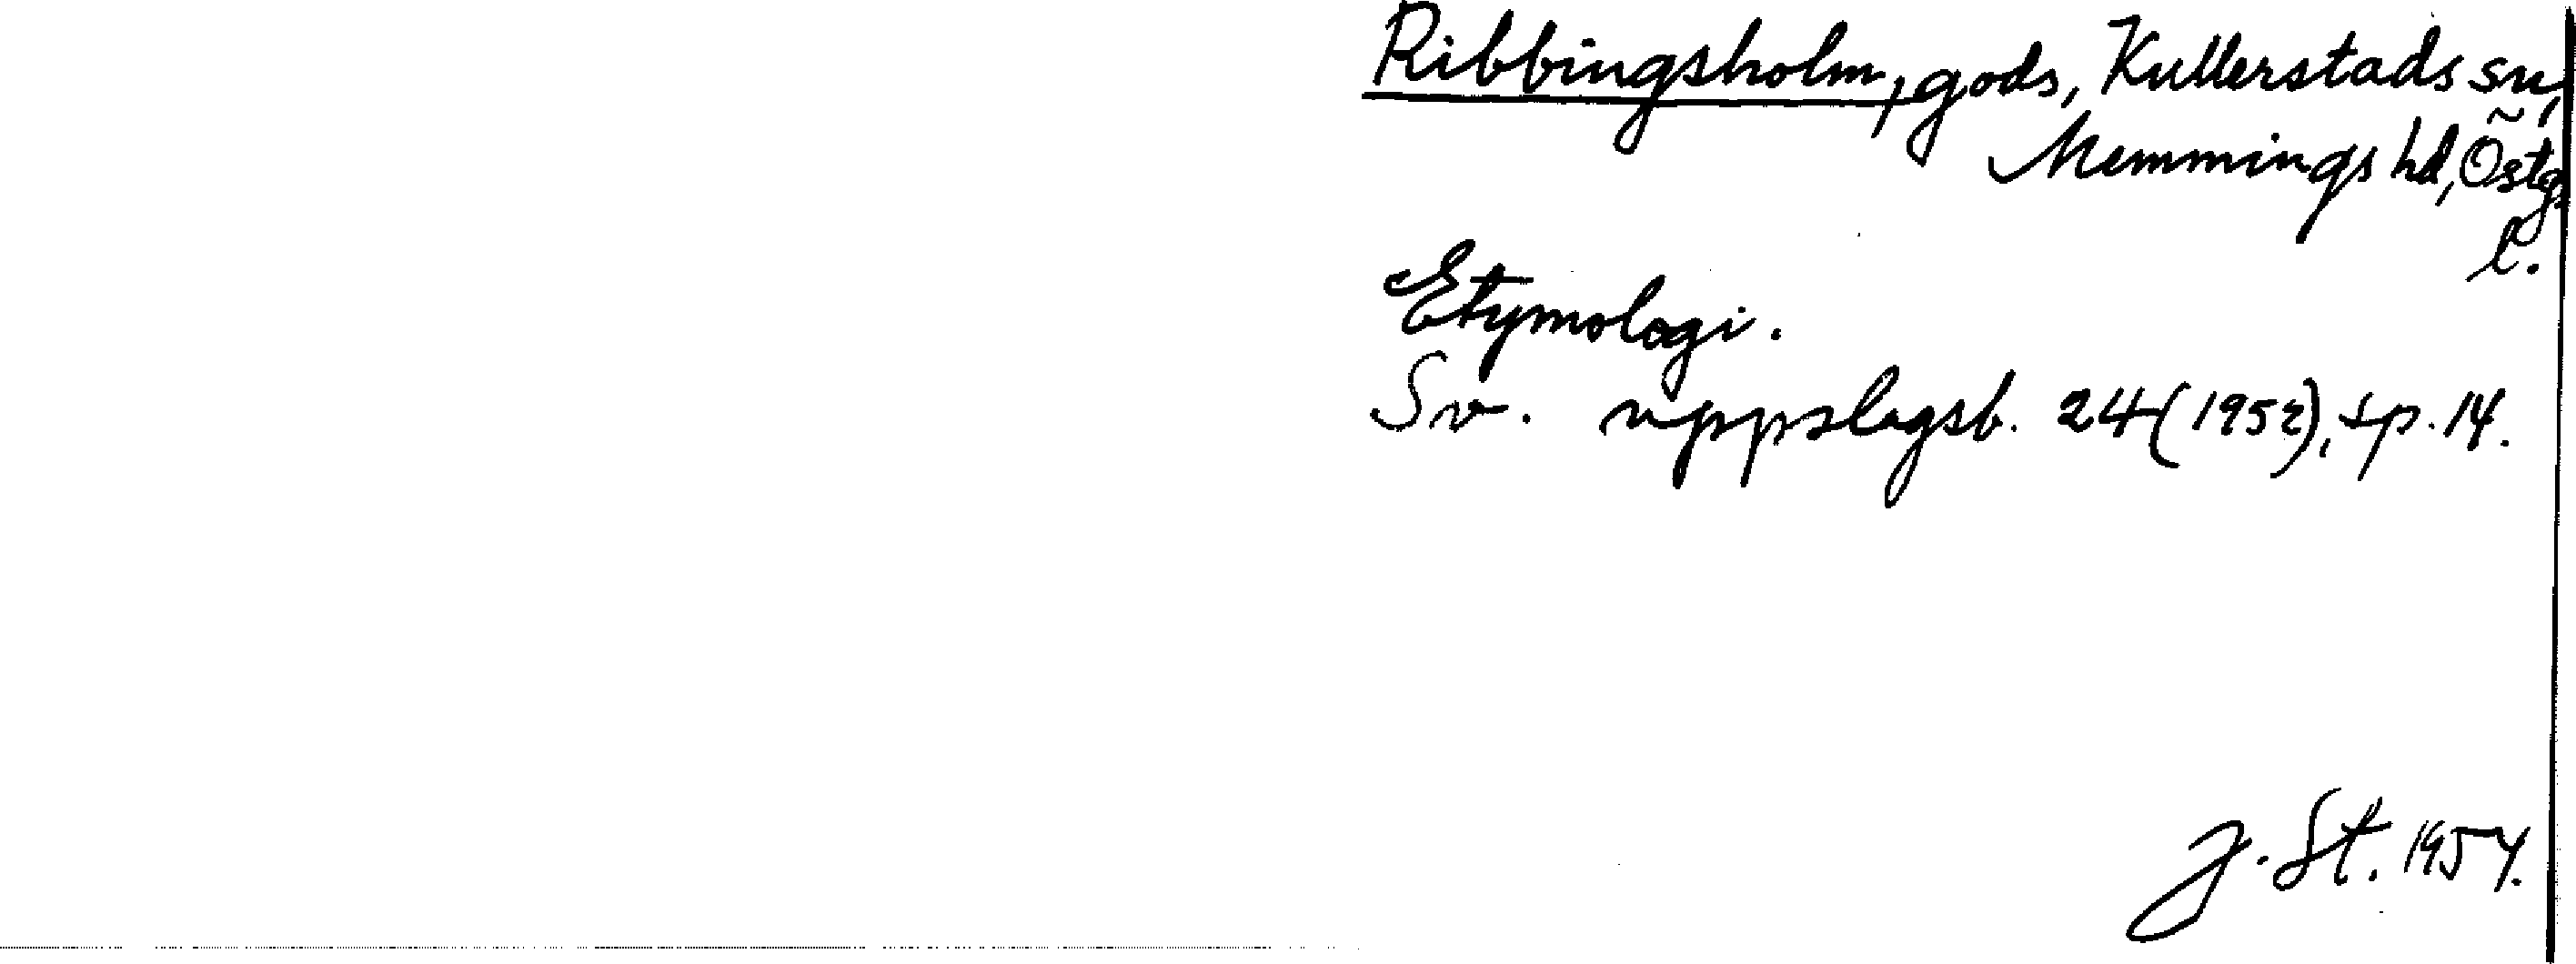 Ribbingsholm, gods, Kullerstads sn,
Memmings hd, Östg.
l.
Etymologi.
Sv. uppslagsb. 24 (1952), sp. 14.
J. St. 1954.